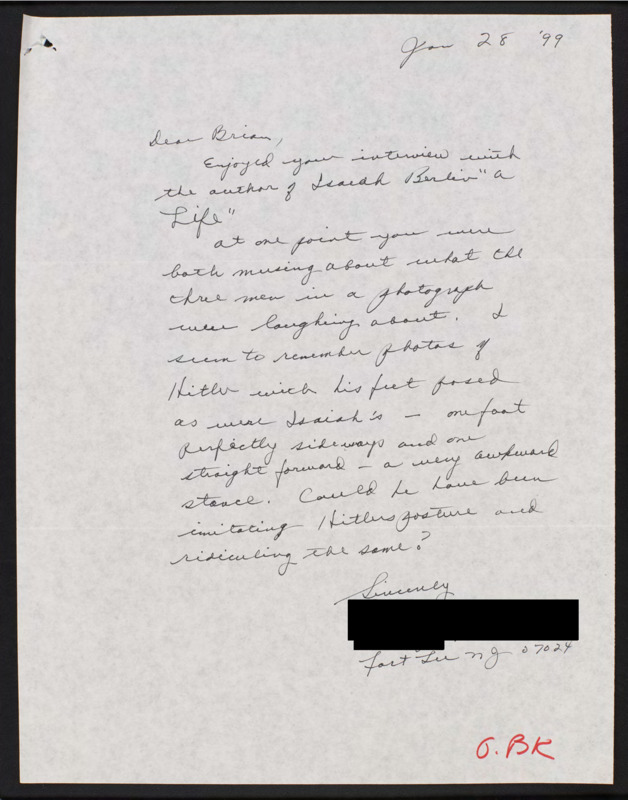 Jan 28 '99
Dear Brian,
Enjoyed your interview with
the author of Isaiah Berlin "a
Life"
at one point you were
both musing about what the
three men in a photograph
were laughing about. I
seem to remember photos of
Hitler with his feet posed
as were Isaiah's – one foot
perfectly sideways and one
straight forward – a very awkward
stance. Could he have been
imitating Hitlers posture and
ridiculing the same?
Sincerely
Fort Lee NJ 07024
O.BK